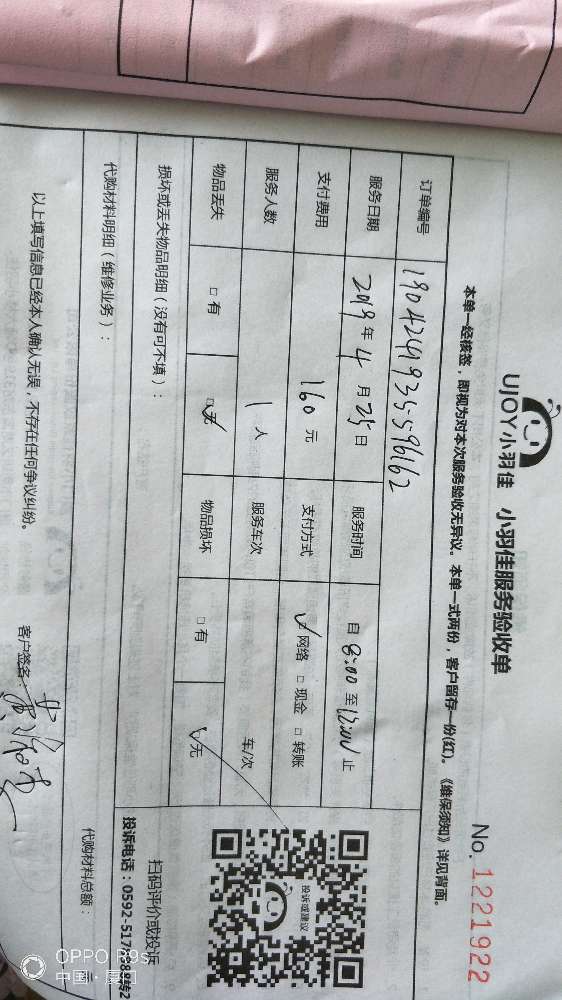 UJOY小羽佳 小羽佳服务验收单
No. 1221922
本单一经核签，即视为对本次服务验收无异议。本单一式两份，客户留存一份(红)。《维保须知》详见背面。
订单编号 1904241935-596162
服务日期 2019年 4 月 25 日 服务时间 自 8:00 至 12:00 止
支付费用 160 元 支付方式 ☑网络 □现金 □转账
服务人数 1 人 服务车次 车/次
物品丢失 □有 ☑无 物品损坏 □有 ☑无
损坏或丢失物品明细（没有可不填）：
投诉或建议
扫码评价或投诉
投诉电话：0592-517
代购材料明细（维修业务）：
代购材料总额：
以上填写信息已经本人确认无误，不存在任何争议纠纷。
客户签名：
OPPO R9s
中国·厦门